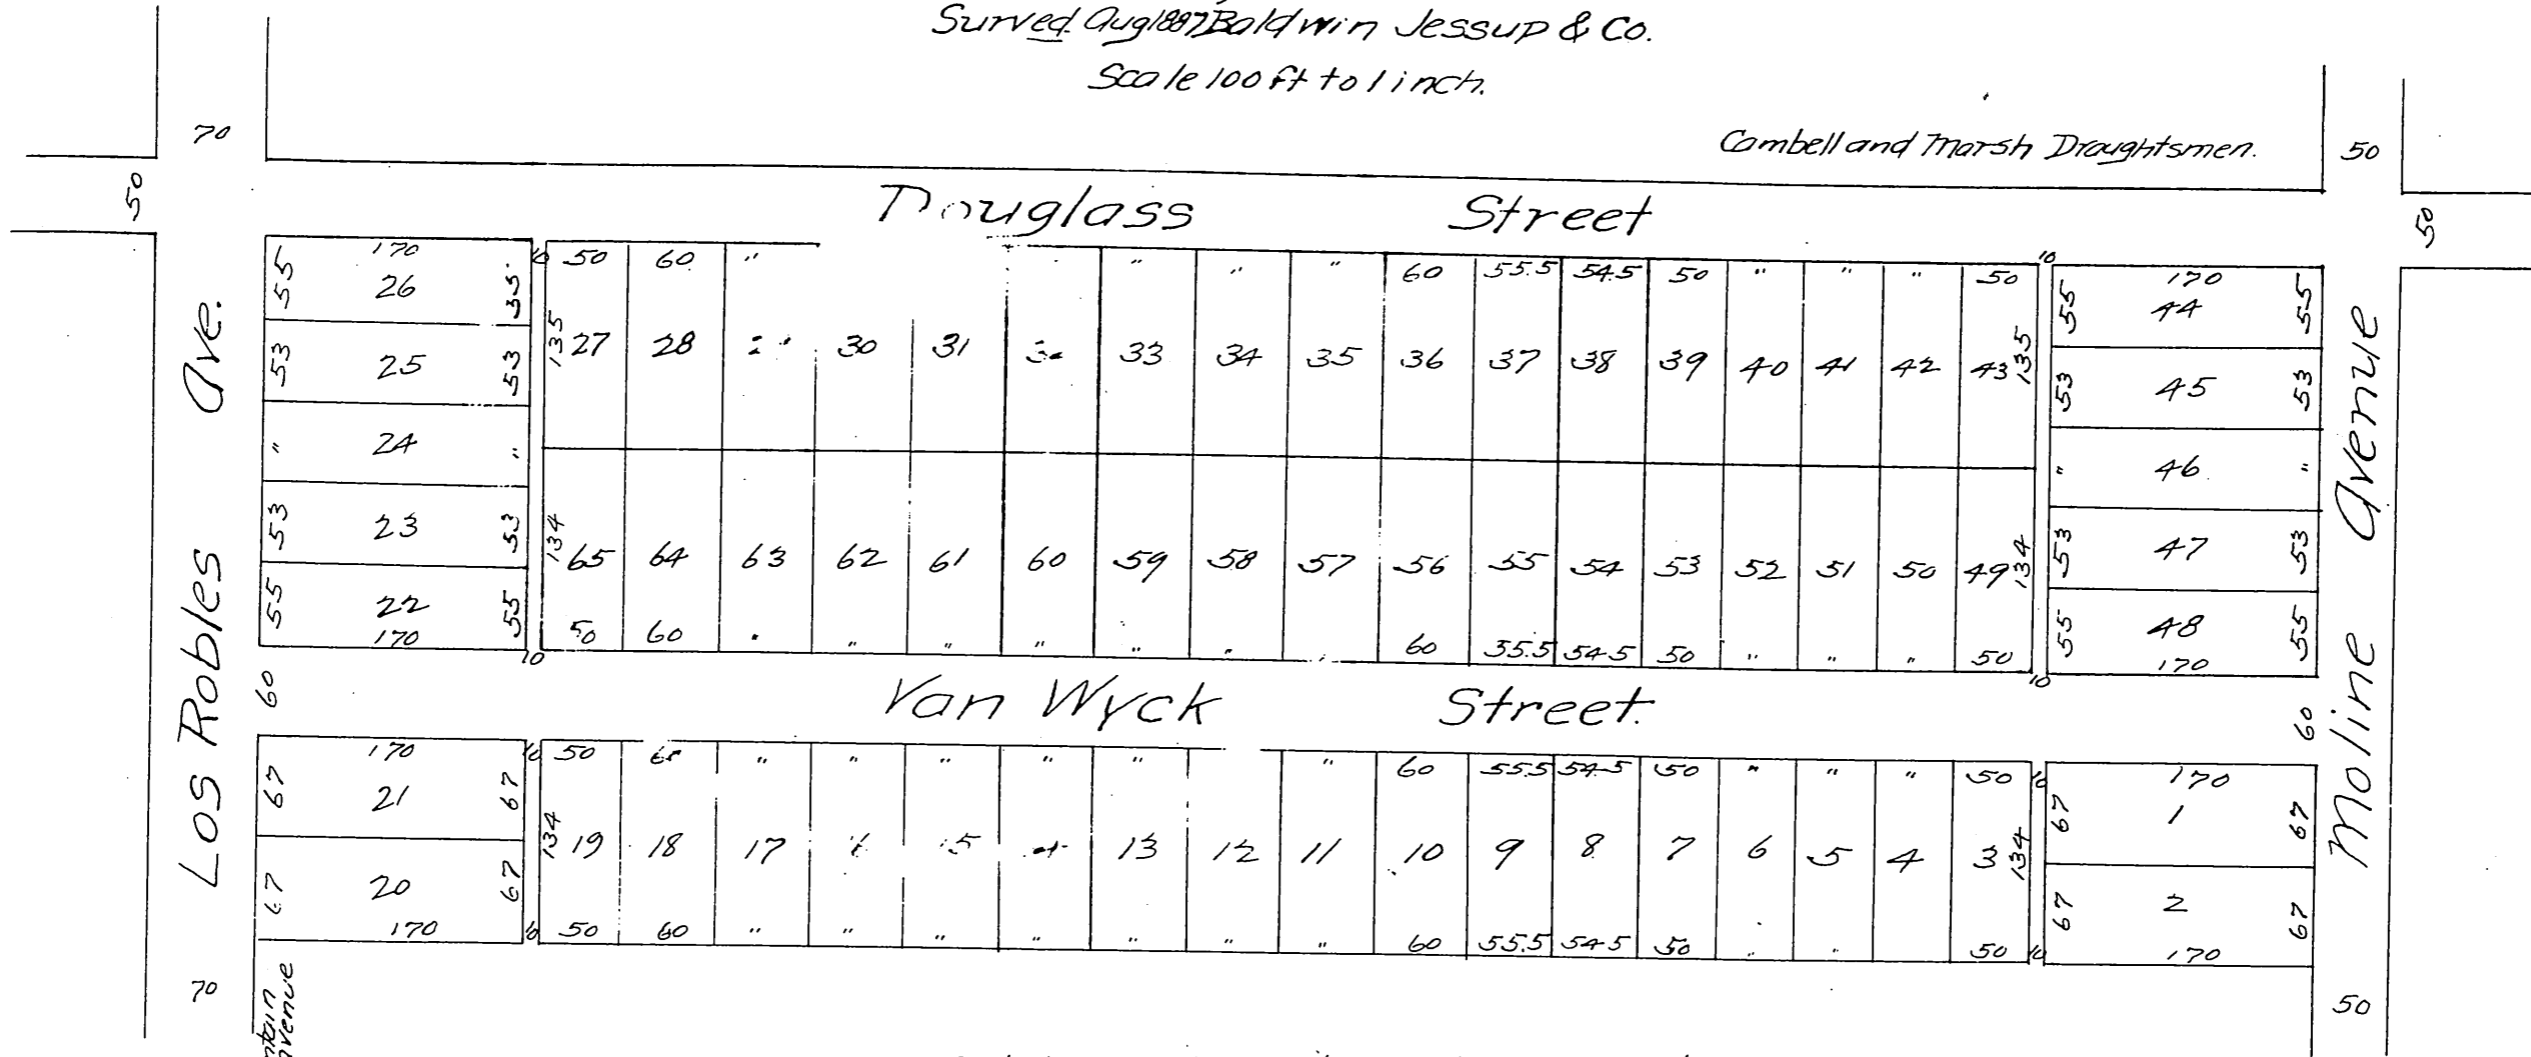 Surved. Aug 1887 Baldwin Jessup & Co.
Scale 100 ft to 1 inch.
Cambell and Marsh Draughtsmen.
70
50
50
50
Douglass Street
Los Robles Ave.
Moline Avenue
170
55 26 55
53 25 53
" 24 "
53 23 53
55 22 55
170
10
10
50 60 " " " " 60 55.5 54.5 50 " " " 50
135 27 28 30 31 33 34 35 36 37 38 39 40 41 42 43 135
134 65 64 63 62 61 60 59 58 57 56 55 54 53 52 51 50 49 134
50 60 " " " " " " 60 55.5 54.5 50 " " " 50
10
10
170
55 44 55
53 45 53
" 46 "
53 47 53
55 48 55
170
60
Van Wyck Street.
60
170
67 21 67
67 20 67
170
10
10
50 " " " " " " 60 55.5 54.5 50 " " " 50
134 19 18 17 13 12 11 10 9 8 7 6 5 4 3 134
50 60 " " " " " " " 60 55.5 54.5 50 " " 50
10
10
170
67 1 67
67 2 67
170
70
50
Avenue